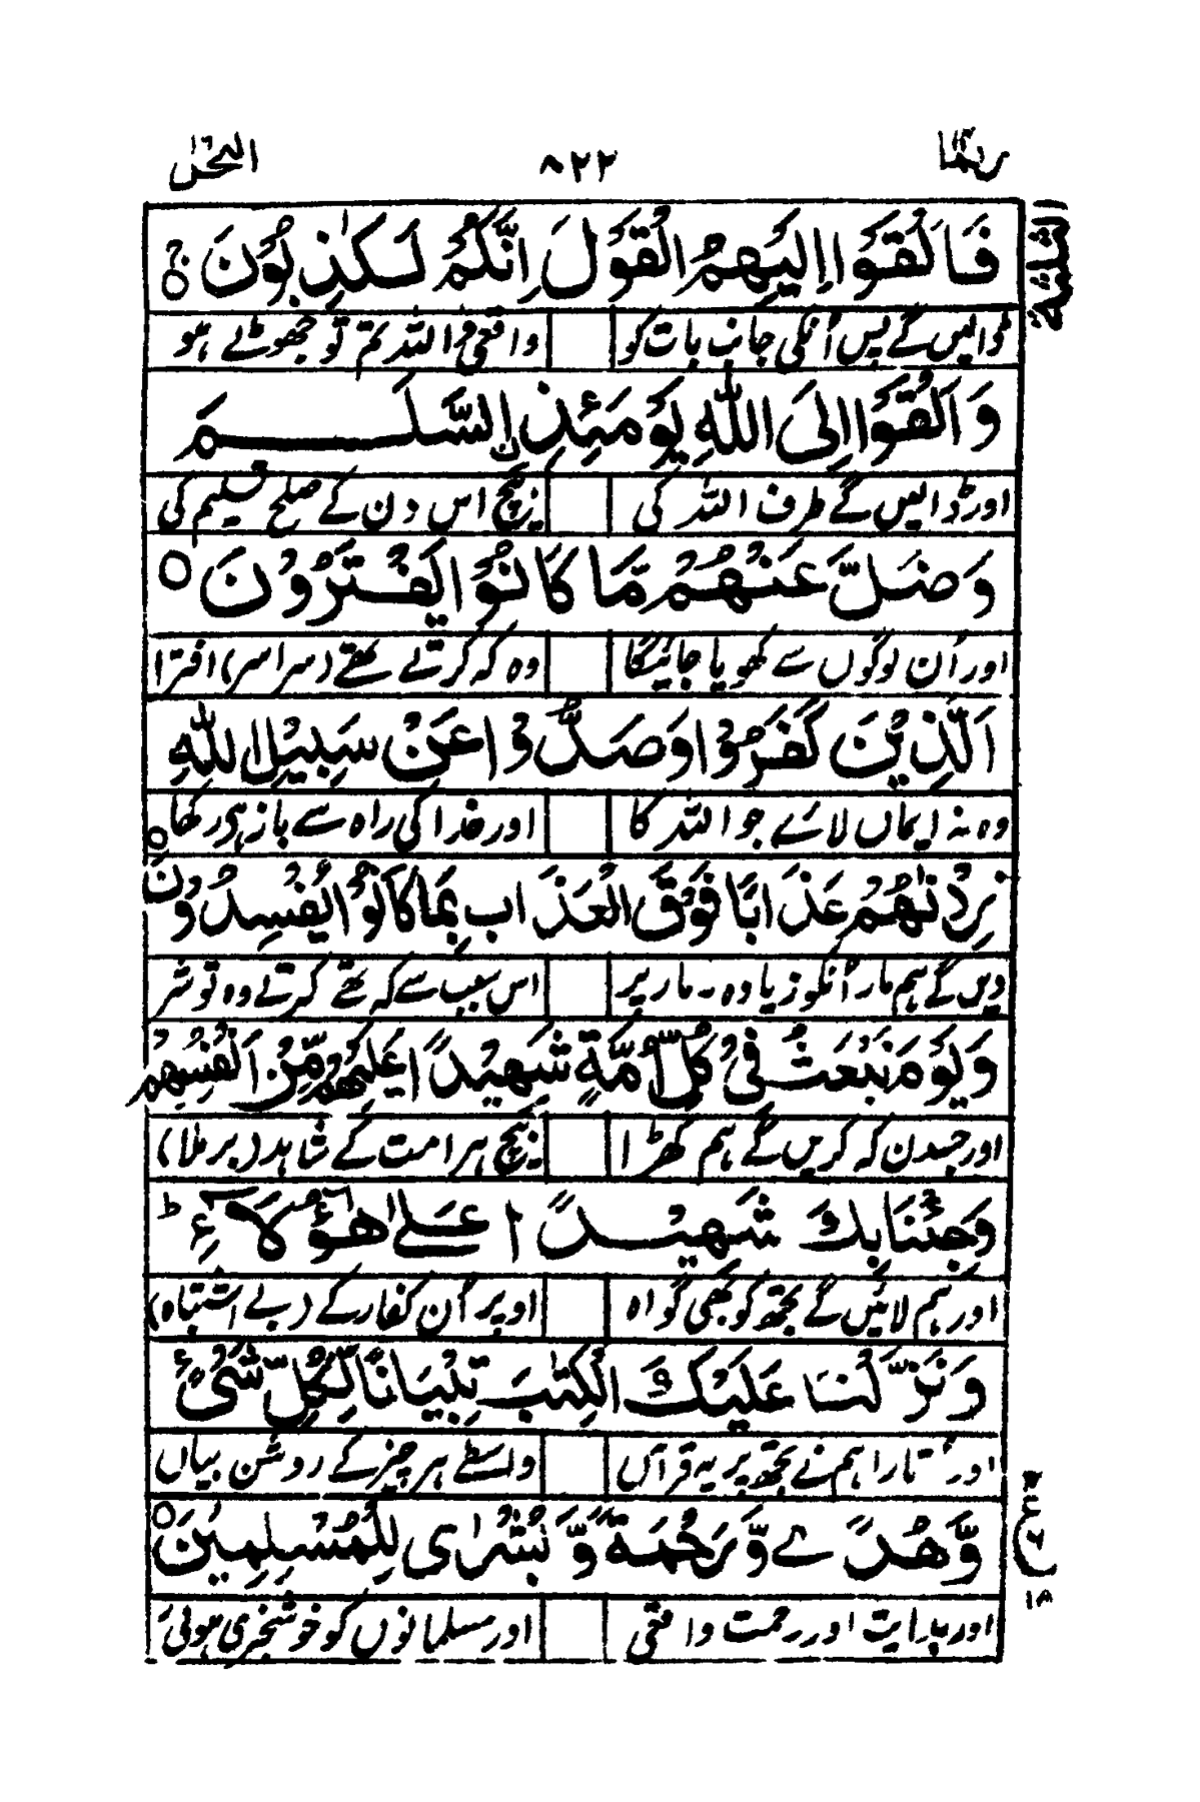 ربما ۸۲۲ النحل
الثلثة
فَاَلْقَوْا اِلَیْهِمُ الْقَوْلَ اِنَّكُمْ لَكٰذِبُوْنَ ۚ○
ڈالیں گے پس اُنکی جانب بات کو واقعی واللہ تم تو جھوٹے ہو
وَاَلْقَوْا اِلَی اللّٰهِ یَوْمَئِذِ اِ۟لسَّلَمَ
اور ڈالیں گے طرف اللہ کی بیچ اس دن کے صلح تسلیم کی
وَضَلَّ عَنْهُمْ مَّا كَانُوْا یَفْتَرُوْنَ ○
اور اُن لوگوں سے کھویا جائیگا وہ کہ کرتے تھے (سراسر) افترا
اَلَّذِیْنَ كَفَرُوْا وَصَدُّوْا عَنْ سَبِیْلِ اللّٰهِ
وہ نہ ایماں لائے جو اللہ کا اور خدا کی راہ سے باز ہی رکھا ○
زِدْنٰهُمْ عَذَابًا فَوْقَ الْعَذَابِ بِمَا كَانُوْا یُفْسِدُوْنَ
دیں گے ہم مار اُنکو زیادہ۔ مار پر اس سبب سے کہ تھے کرتے وہ تو شر
وَیَوْمَ نَبْعَثُ فِیْ كُلِّ اُمَّةٍ شَهِیْدًا عَلَیْهِمْ مِّنْ اَنْفُسِهِمْ
اور جسدن کہ کریں گے ہم کھڑا بیچ ہر امت کے شاہد (برملا)
وَجِئْنَا بِكَ شَهِیْدًا عَلٰی هٰٓؤُلَآءِ ؕ
اور ہم لائیں گے تجھ کو بھی گواہ اوپر اُن کفار کے (بے اشتباہ)
وَنَزَّلْنَا عَلَیْكَ الْكِتٰبَ تِبْیَانًا لِّكُلِّ شَیْءٍ
اور اُتارا ہم نے تجھ پر یہ قرآں واسطے ہر چیز کے روشن بیاں
وَّهُدًی وَّرَحْمَةً وَّبُشْرٰی لِلْمُسْلِمِیْنَ ○
ع
۱۸
اور ہدایت اور رحمت واقعی اور مسلمانوں کو خوشخبری ہوئی